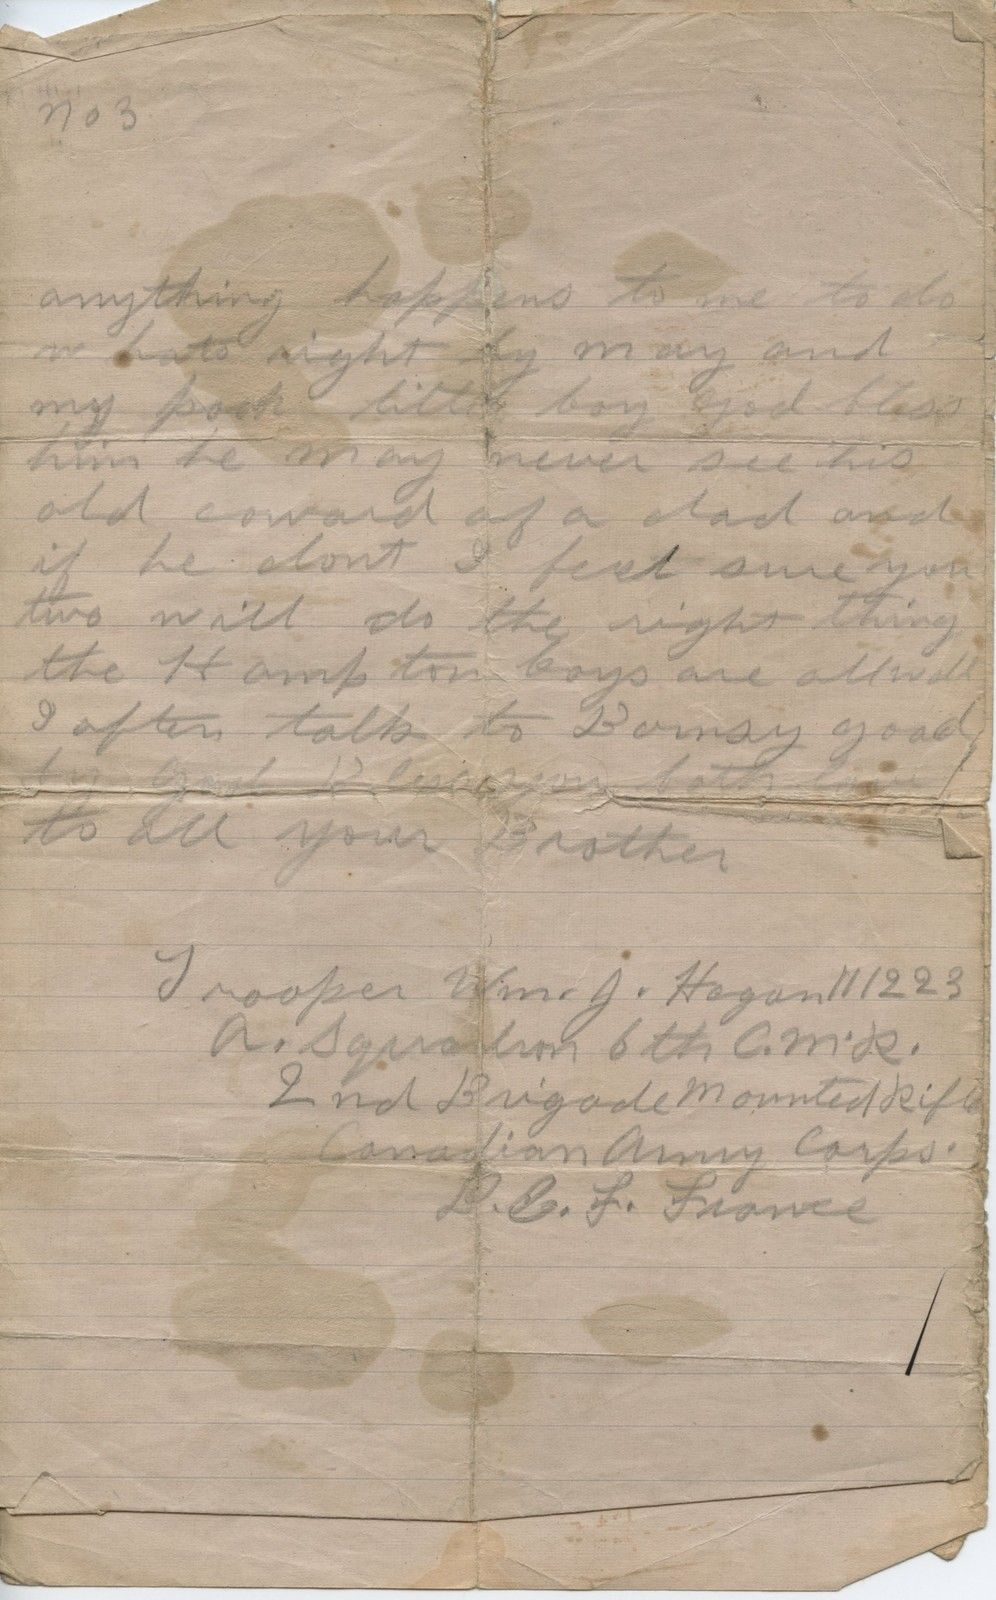 no 3
anything happens to me to do
whats right by may and
my poor little boy god bless
him he may never see his
old coward of a dad and
if he dont I feel sure you
two will do the right thing
the Hampton boys are all well
I often talk to Bomsy good
by god Bless you both love
to all your Brother
Trooper Wm. J. Hogan 111223
A. Squadron 6th C.M.R.
2nd Brigade Mounted Rifle
Canadian Army Corps.
B.E.F. France